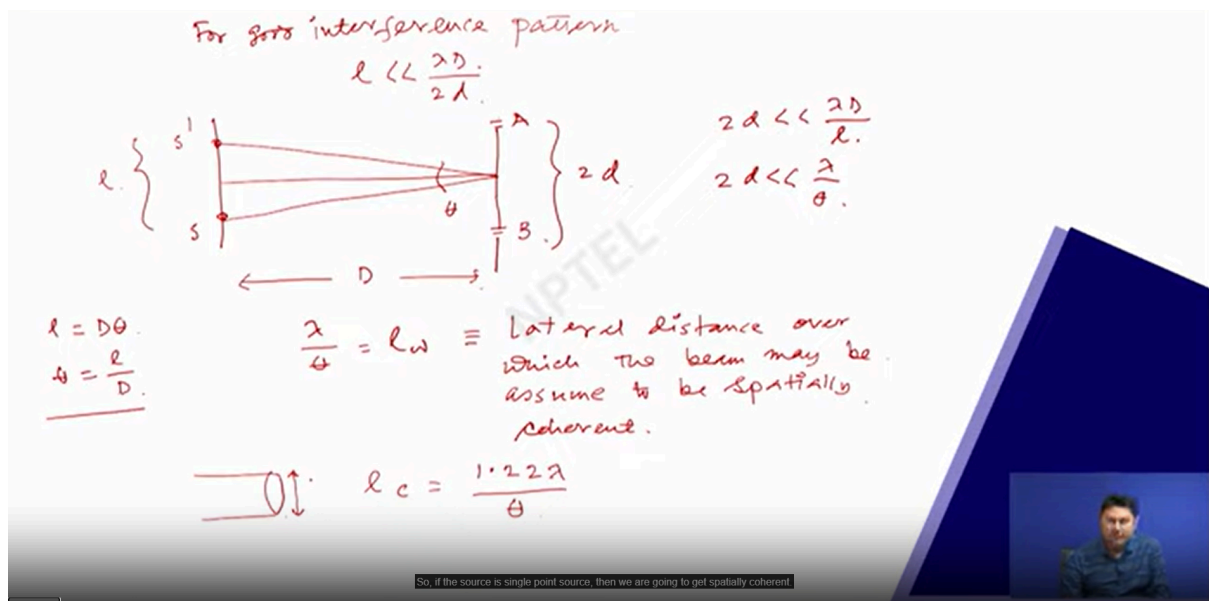 For good interference pattern
l << λD / 2d.
S'
A
l.
θ
2d.
S
B.
D
2d << λD / l.
2d << λ / θ.
l = Dθ.
θ = l / D.
λ / θ = lω ≡ Lateral distance over
which the beam may be
assume to be spatially
coherent.
lc = 1.22λ / θ
NPTEL
So, if the source is single point source, then we are going to get spatially coherent.